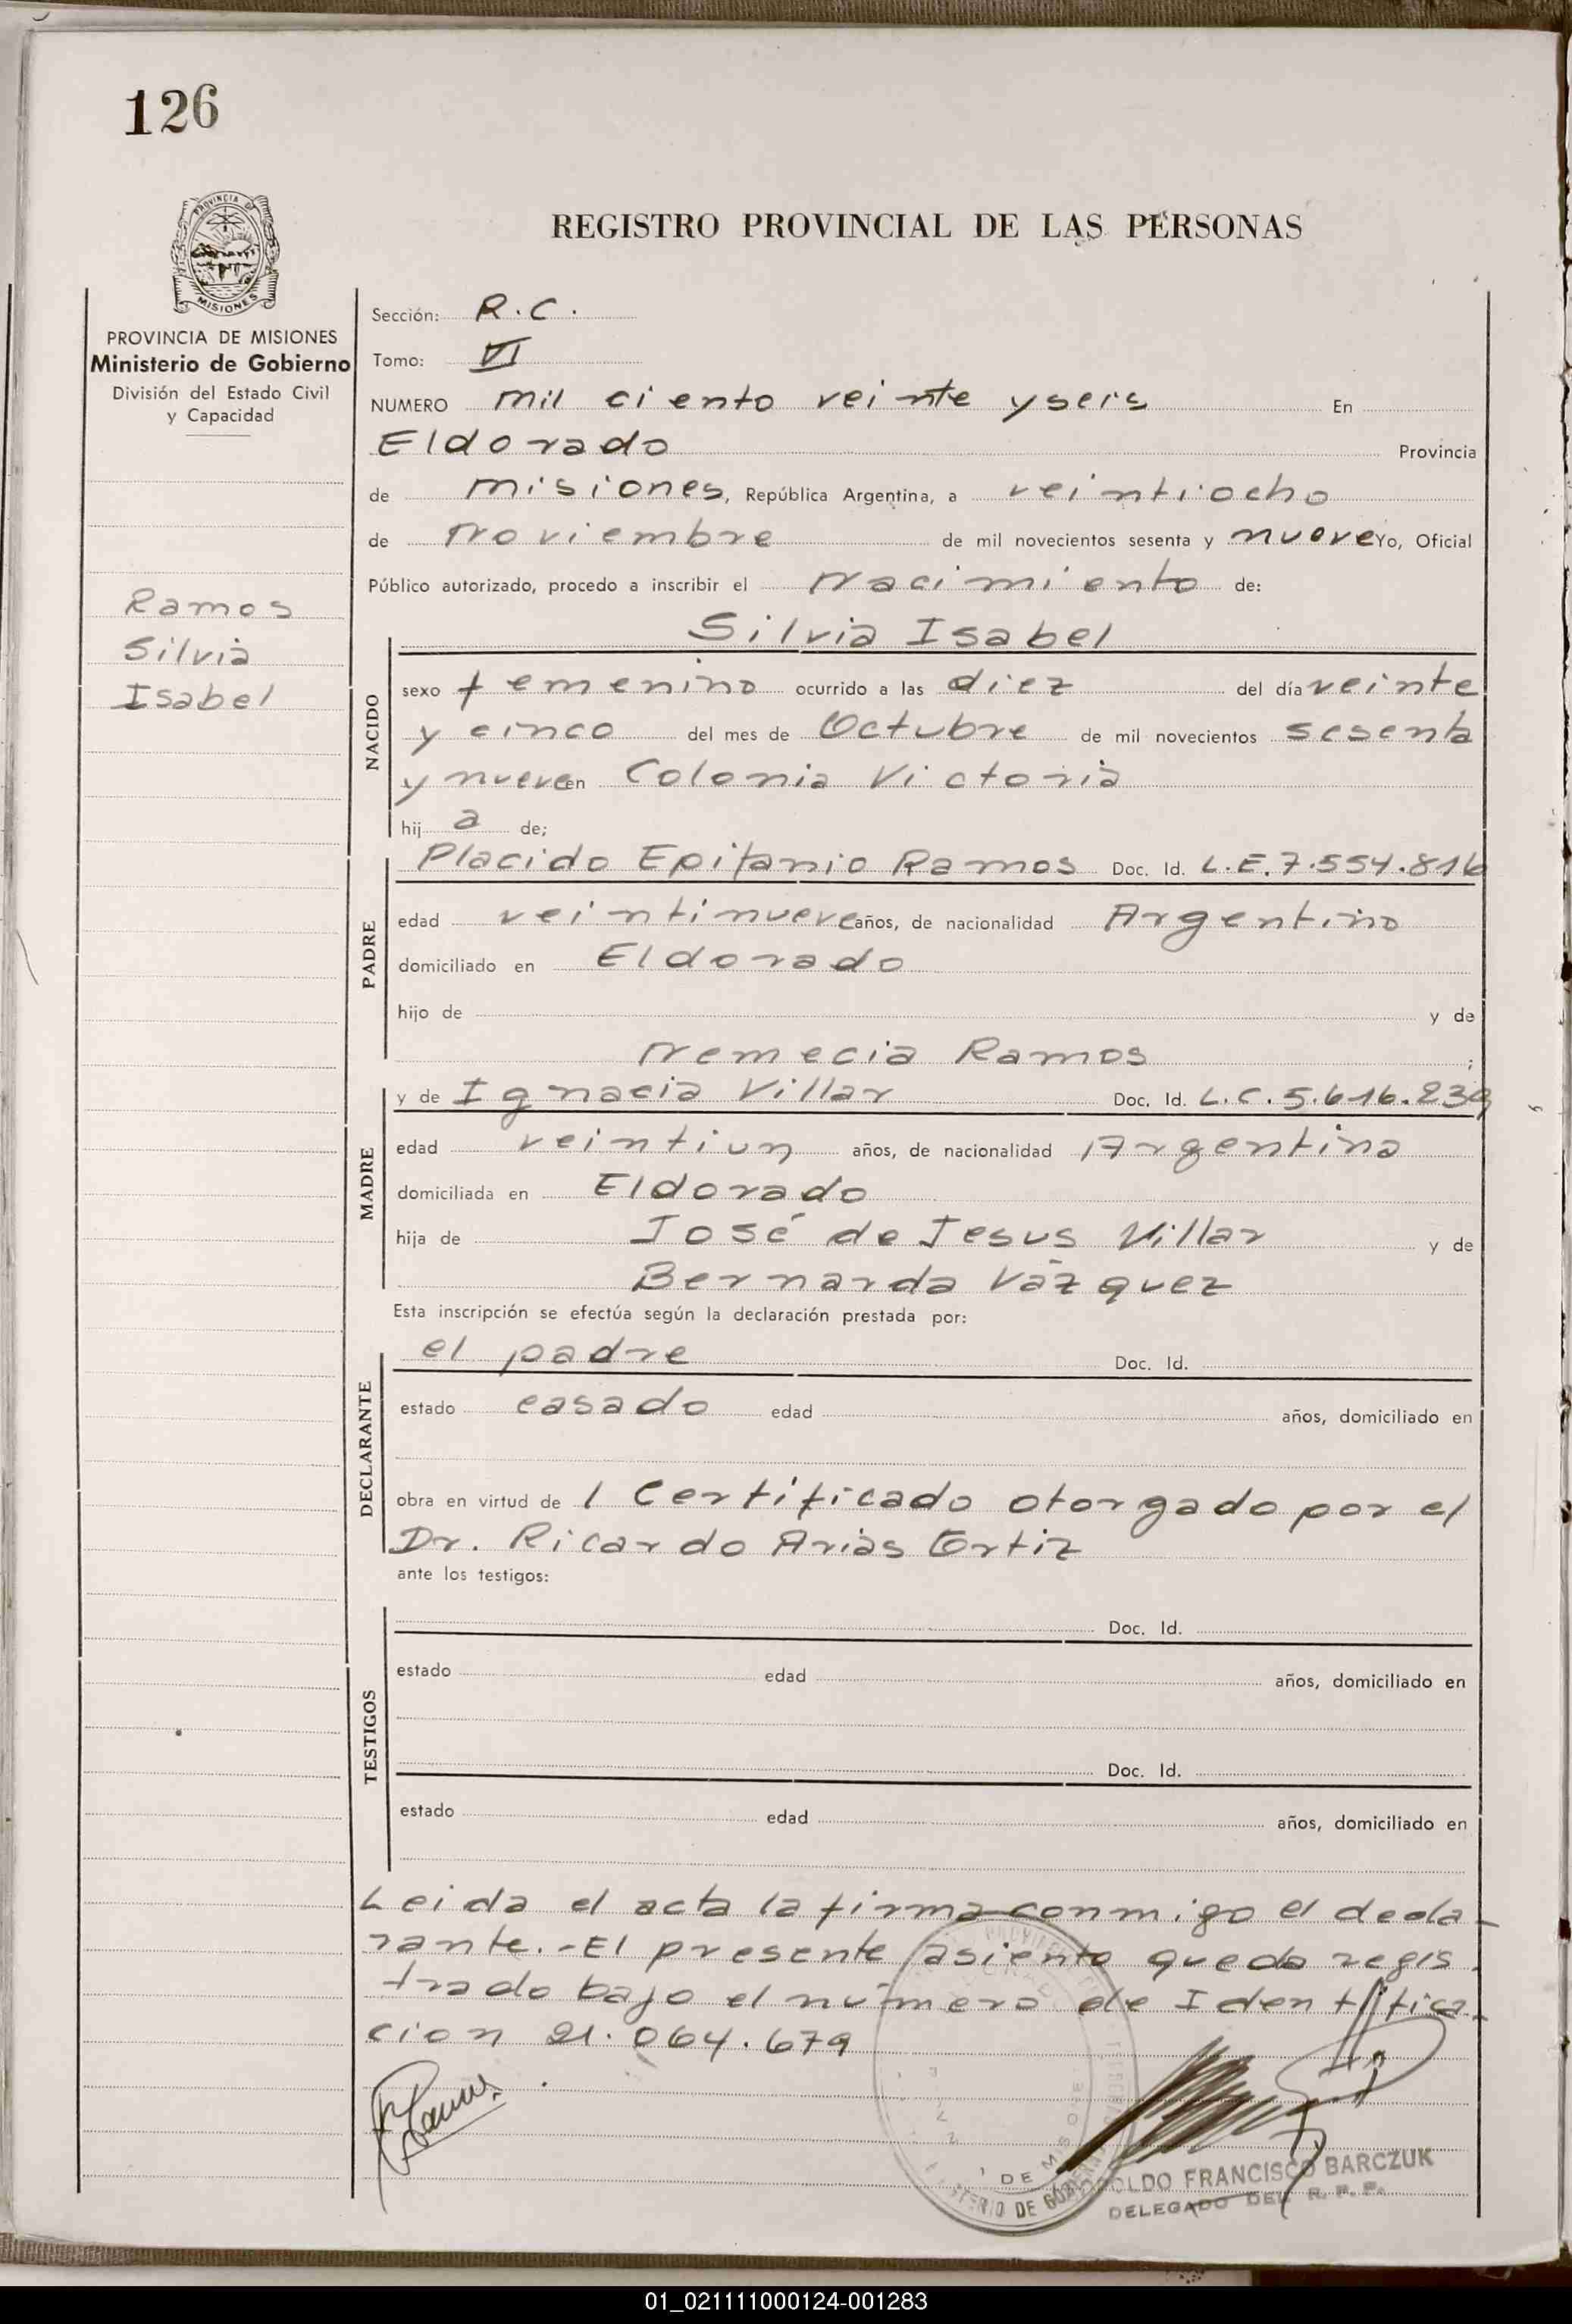 126
PROVINCIA DE MISIONES
REGISTRO PROVINCIAL DE LAS PERSONAS
PROVINCIA DE MISIONES
Ministerio de Gobierno
División del Estado Civil
y Capacidad
Ramos
Silvia
Isabel
Sección: R.C.
Tomo: VI
NUMERO mil ciento veinte y seis En
Eldorado Provincia
de misiones, República Argentina, a veintiocho
de Noviembre de mil novecientos sesenta y nueve Yo, Oficial
Público autorizado, procedo a inscribir el Nacimiento de:
Silvia Isabel
NACIDO
sexo femenino ocurrido a las diez del día veinte
y cinco del mes de Octubre de mil novecientos sesenta
y nueve en Colonia Victoria
hij a de;
Placido Epifanio Ramos Doc. Id. L.E.7.554.816
PADRE
edad veintinueve años, de nacionalidad Argentino
domiciliado en Eldorado
hijo de y de
Nemecia Ramos ;
y de Ignacia Villar Doc. Id. L.C.5.616.239
MADRE
edad veintiun años, de nacionalidad Argentina
domiciliada en Eldorado
hija de José de Jesus Villar y de
Bernarda Vázquez
Esta inscripción se efectúa según la declaración prestada por:
el padre Doc. Id.
DECLARANTE
estado casado edad años, domiciliado en
obra en virtud de 1 Certificado otorgado por el
Dr. Ricardo Arias Ortiz
ante los testigos:
Doc. Id.
TESTIGOS
estado edad años, domiciliado en
Doc. Id.
estado edad años, domiciliado en
Leida el acta la firma conmigo el decla-
rante.-El presente asiento queda regis-
trado bajo el número de Identifica-
cion 21.064.679
Ramos
DE GOBIERNO
DE MISIONE
FRANCISCO BARCZUK
DELEGADO DEL R. P. P.
01_021111000124-001283